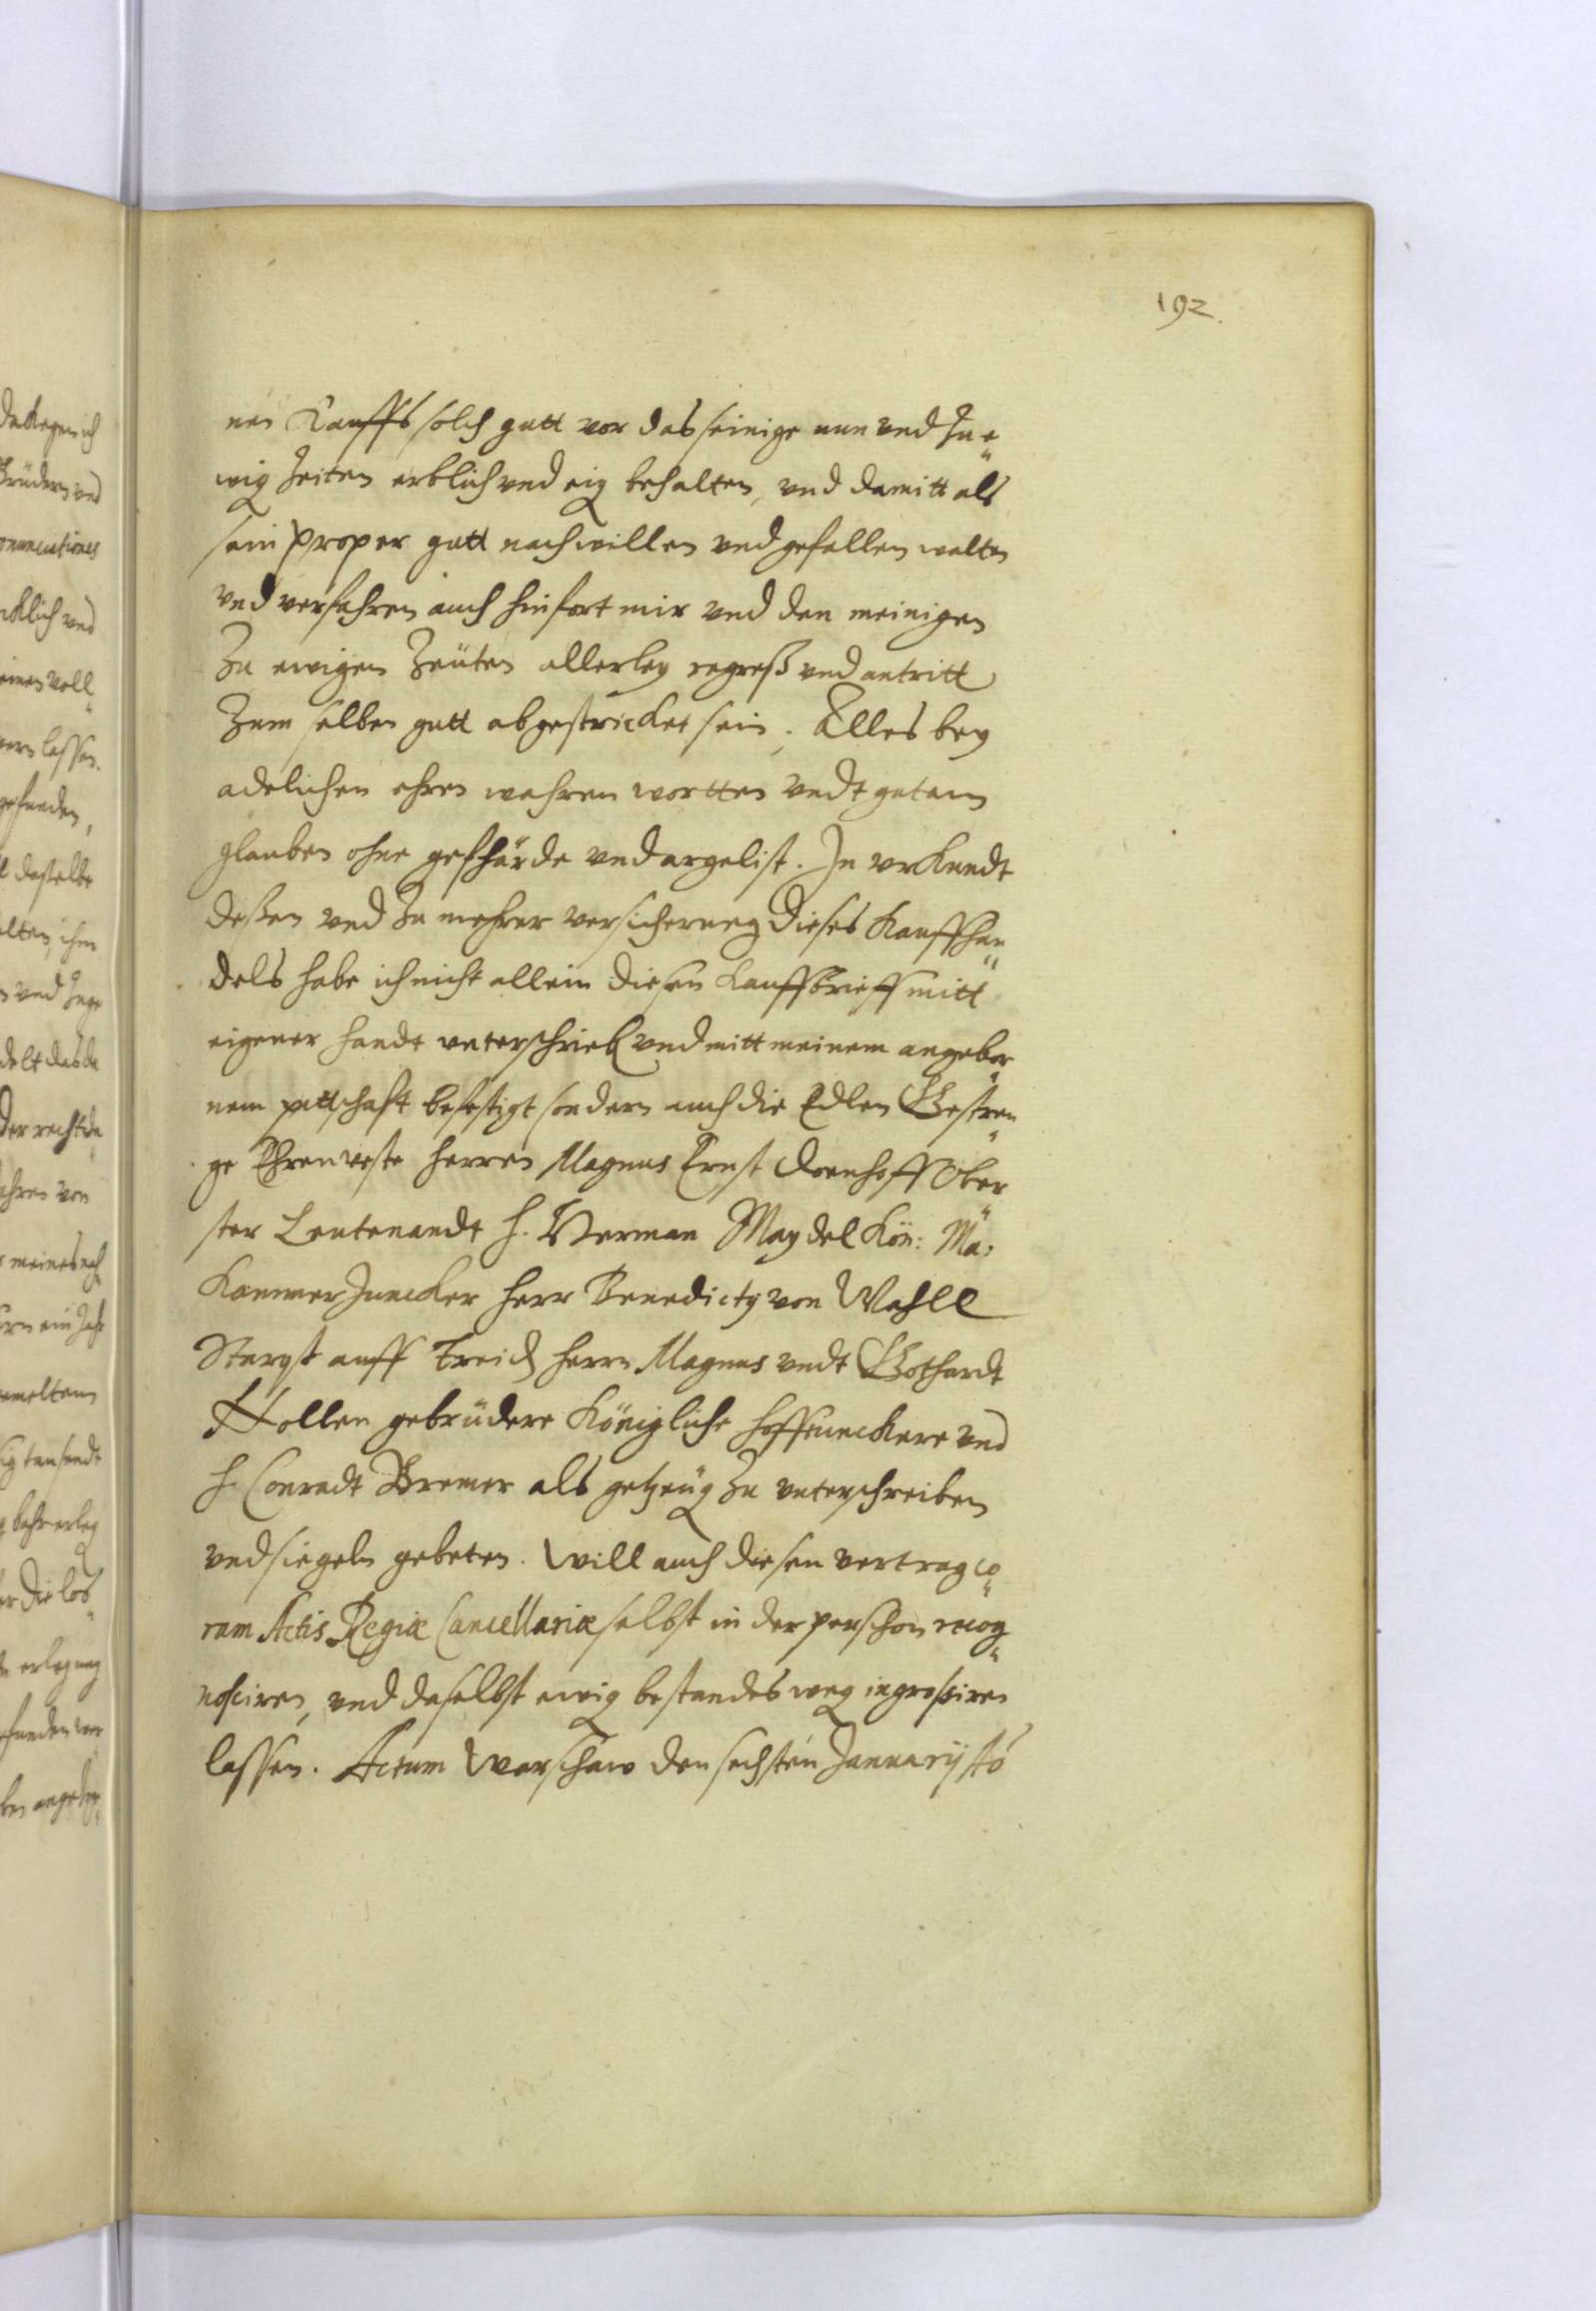 192.
nes Kauffs solch gutt vor das seinige nun vnd Zu e¬
wig Zeiten erblich vnd eig behalten, vnd damitt als
sein proper gutt nach willen vnd gefallen walten
vnd verfahren auch hinfort mir vnd den meinigen
Zu ewigen Zeüten allerley regreß vnd antritt
Zum selben gutt abgestricket sein. Alles bey
adelichen ehren wahren wortten vndt gutem
glauben ohne gefährde vnd argelist. In vrkundt
deßen vnd Zu mehrer versicherung dieses Kauffhan¬
dels habe ich nicht allein diesen Kauffbrieff mitt
eigener handt vnterschrieb vnd mitt meinem angebor¬
nem pittschaft befestigt sondern auch die Edlen Gestren¬
ge Ehrenveste herren Magnus Ernst Doenhoff Ober¬
ster Leutenandt H. Herman Maydel Kön: Ma:
Kammer Juncker herr Benedicty von Wahll
Starost auff Treid herrn Magnus vndt Gothardt
Nollen gebrüdere Königliche hoffJunckere vnd
H. Conradt Bremer als getzeüg Zu vnterschreiben
vnd siegeln gebeten. Will auch diesen vertrag co¬
ram Actis Regiæ Cancellariæ selbst in der perschon recog¬
nosciren, vnd daselbst ewig bestandes weg ingroßiren
lassen. Actum Warschaw den sechsten Januarij